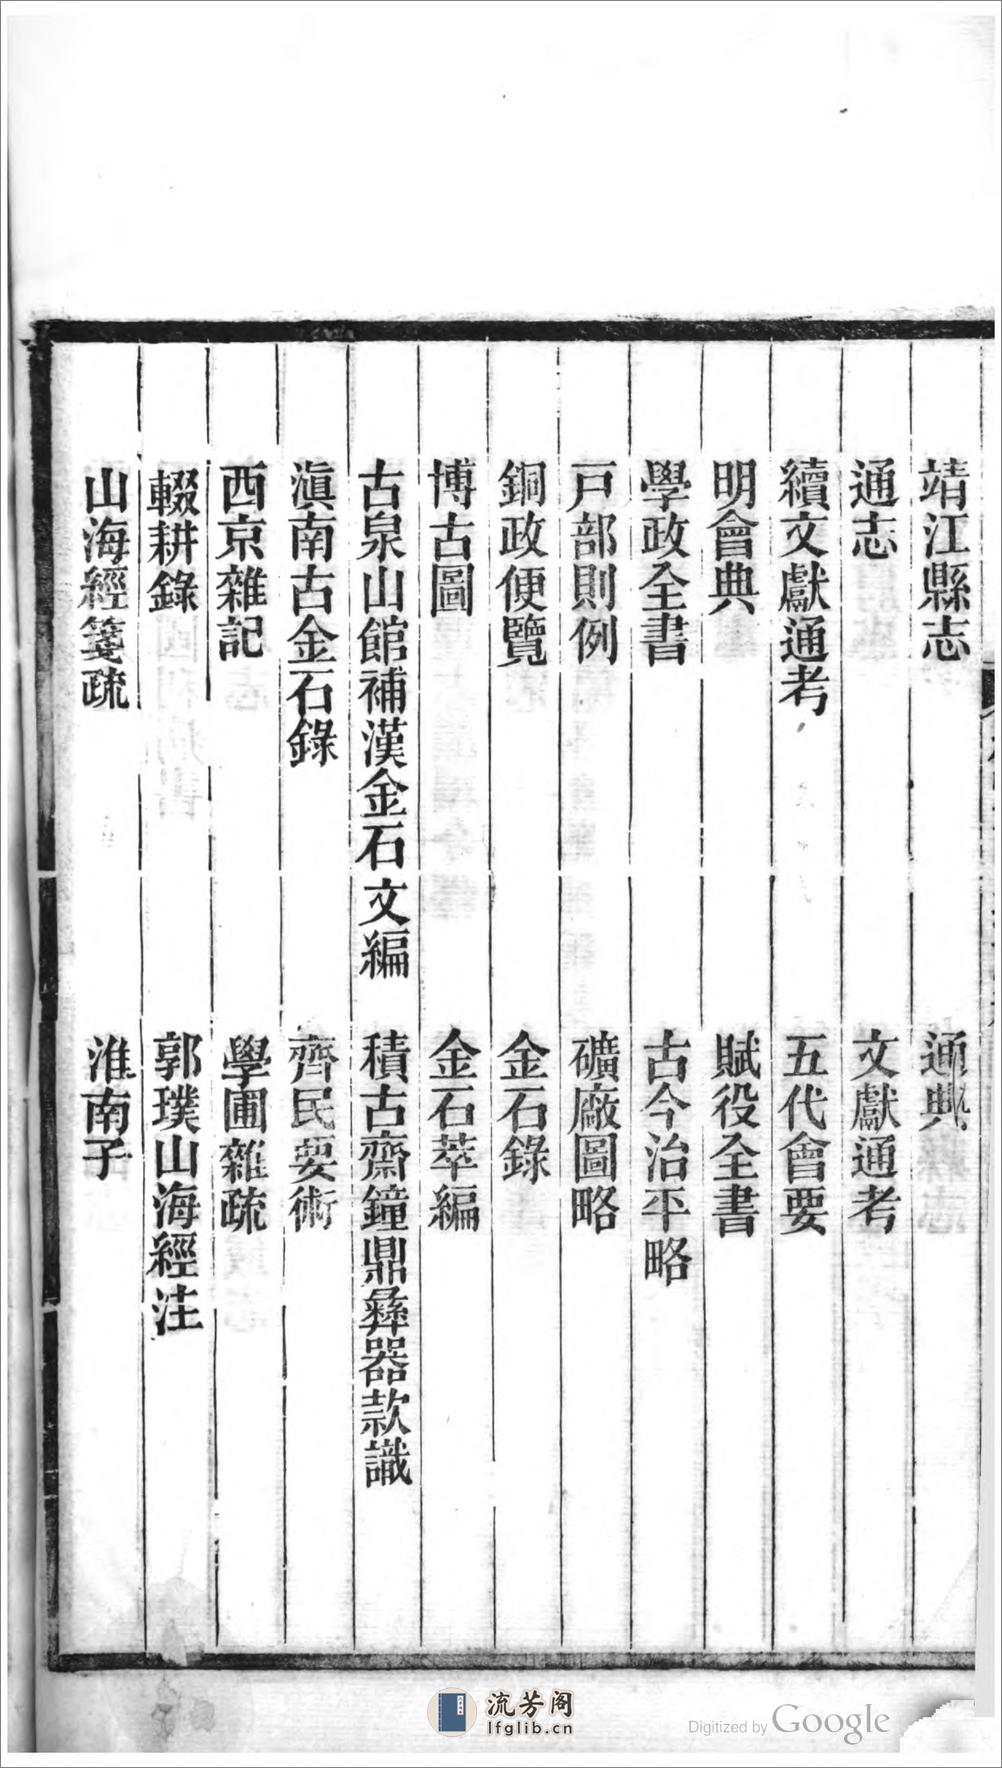 靖江縣志 通典
通志 文獻通考
續文獻通考 五代會要
明會典 賦役全書
學政全書 古今治平略
戸部則例 礦廠圖略
銅政便覽 金石錄
博古圖 金石萃編
古泉山館補漢金石文編 積古齋鐘鼎彝器款識
滇南古金石錄 齊民要術
西京雜記 學圃雜疏
輟耕錄 郭璞山海經注
山海經箋疏 淮南子
流芳阁
lfglib.cn
Digitized by Google